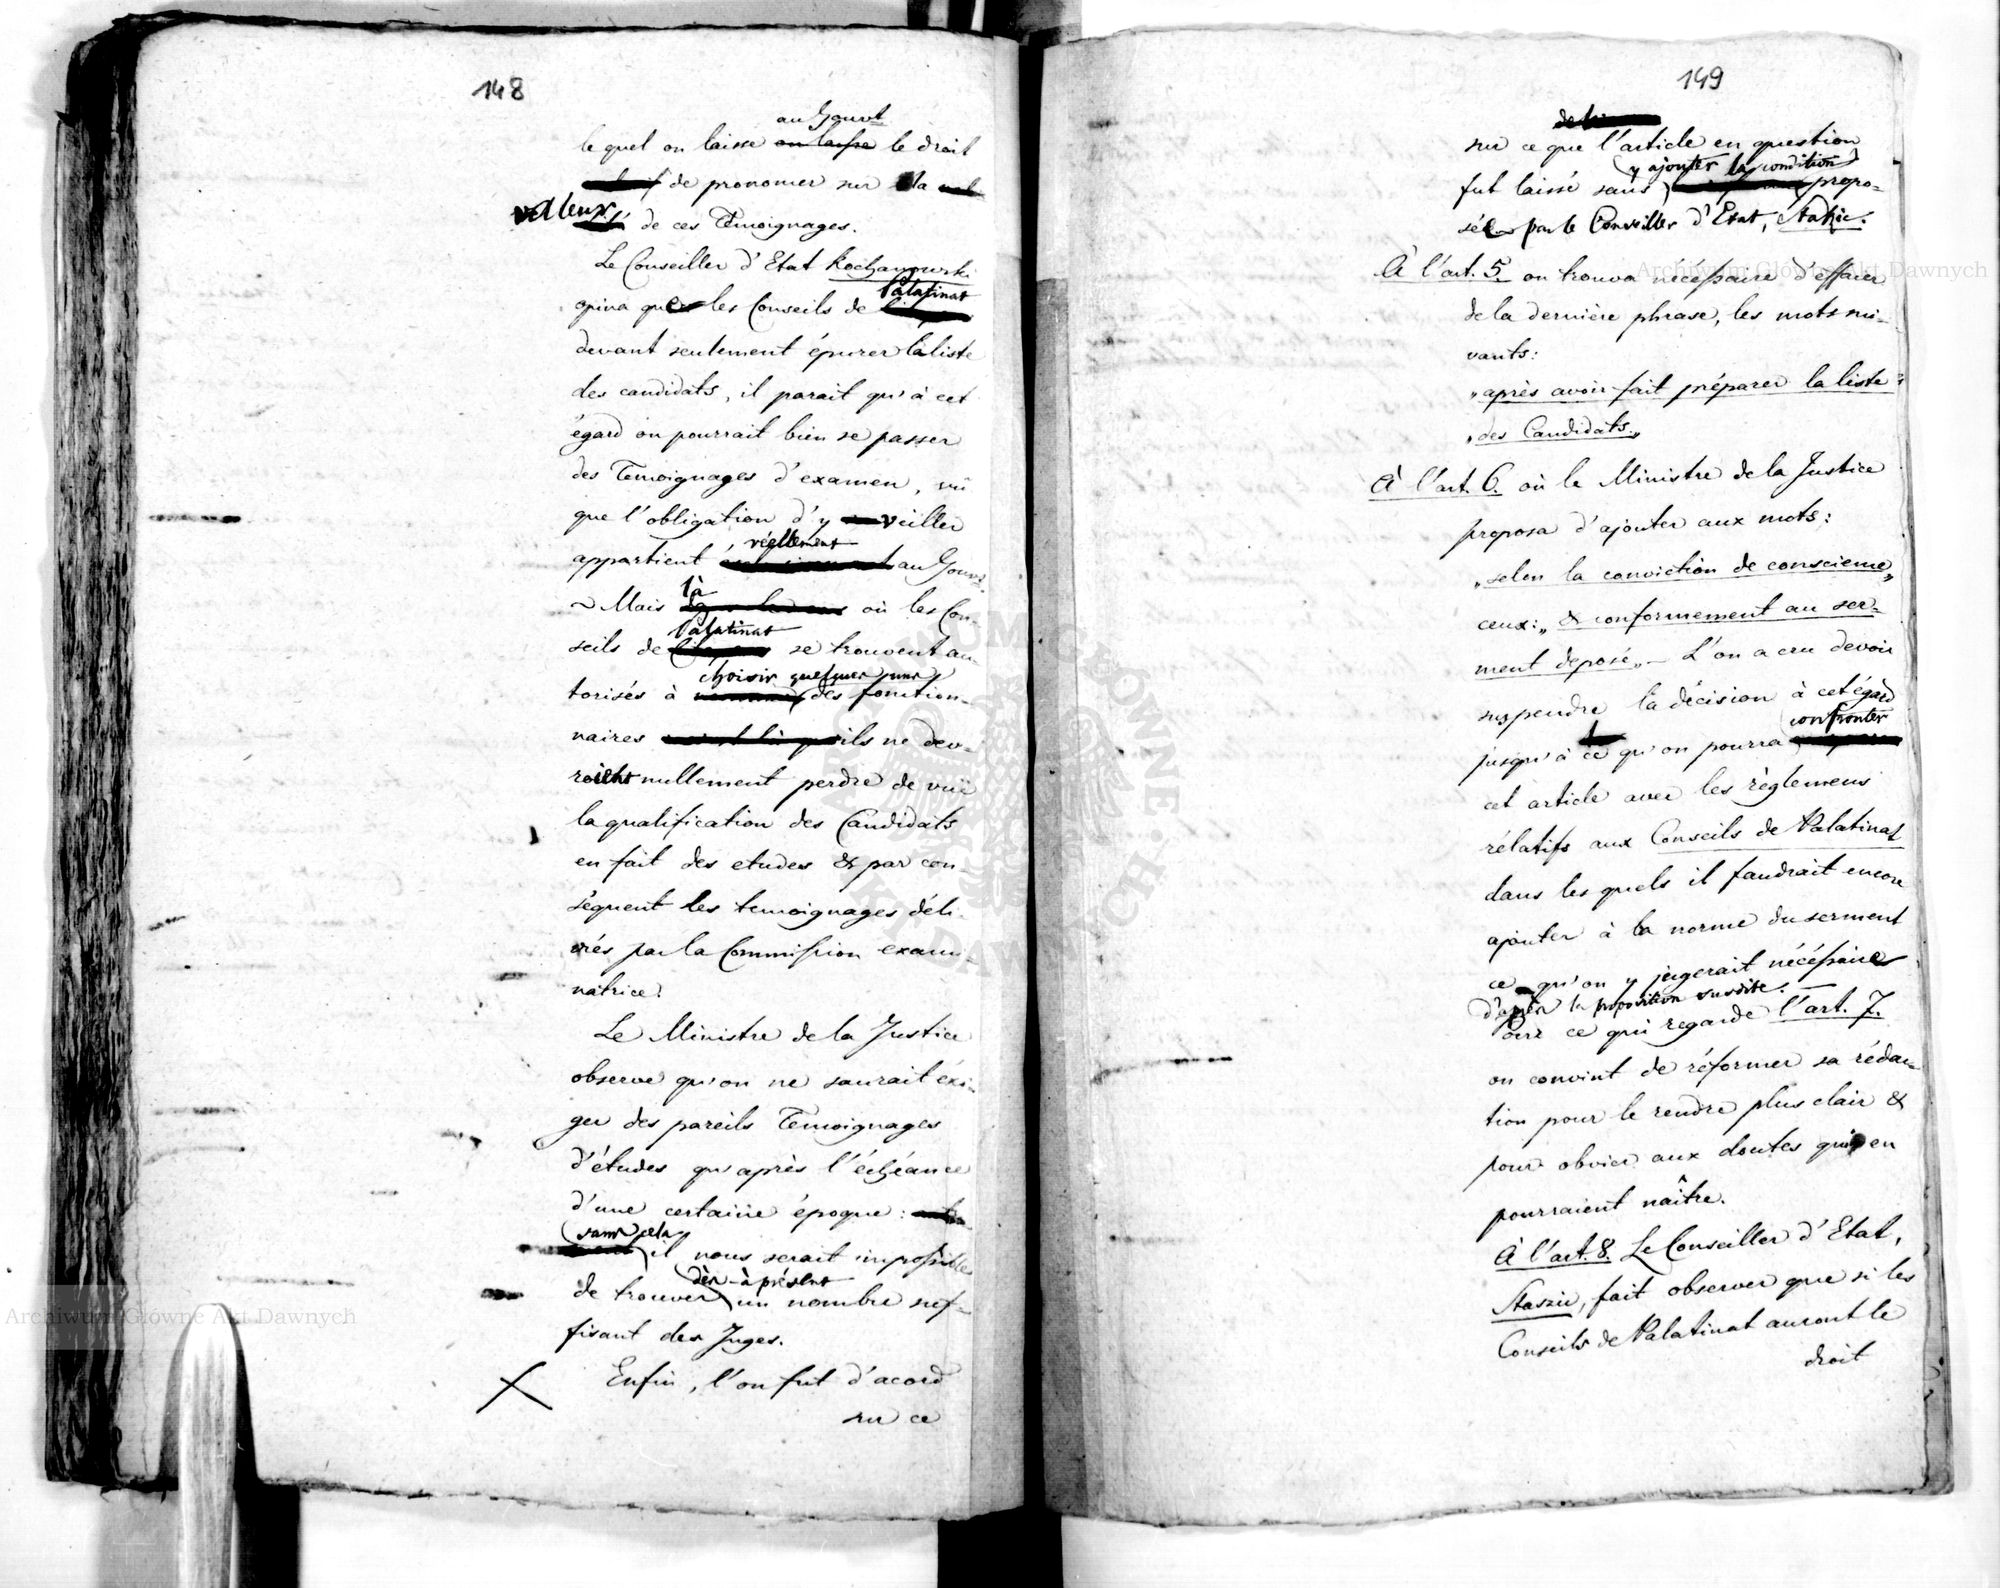 148
au Gouvt
le quel on laisse on laisse le droit
de prononcer sur la
valleur
de ces Temoignages.
Le Conseiller d'Etat Kochanowski
Palatinat
opina que les Conseils de
devant seulement épurer la liste
des candidats, il parait qu'à cet
égard on pourrait bien se passer
des Temoignages d'examen, vû
que l'obligation d'y veiller
réellement
appartient au Gouvt
~ Mais là où les Con-
Palatinat
seils de se trouvent au-
choisir quelques uns
torisés à des fonction-
naires ils ne dev-
roient nullement perdre de vuë
la qualification des Candidats
en fait des etudes & par con
séquent les temoignages déli-
vrés par la Commission exami-
natrice.
Le Ministre de la Justice
observe qu'on ne saurait éxi-
ger des pareils Temoignages
d'études qu'après l'échéance
d'une certaine époque:
sans cela
il nous serait impossible
dès-à présent
de trouver un nombre suf-
fisant des Juges.
Enfin, l'on fut d'acord
sur ce
149
sur ce que l'article en question
y ajouter la condition
fut laissé sans propo-
sée par le Conseiller d'Etat, Stasic.
À l'art. 5. on trouva nécessaire d'effacer
de la dernière phrase, les mots sui-
vants:
„après avoir fait préparer la liste"
„des Candidats„
À l'art. 6. où le Ministre de la Justice
proposa d'ajouter aux mots:
„selon la conviction de conscience„
ceux: „& conformement au ser-
ment deposé„ – L'on a cru devoir
suspendre la décision à cet égard
confronter
jusqu'à ce qu'on pourra
cet article avec les règlemens
rélatifs aux Conseils de Palatinat
dans les quels il faudrait encore
ajouter à la norme du serment
ce qu'on y jugerait nécéssaire
d'après la proposition susdite. –
Pour ce qui regarde l'art. 7.
on convint de réformer sa rédac-
tion pour le rendre plus clair &
pour obvier aux doutes qui en
pourraient naître.
À l'art. 8. Le Conseiller d'Etat,
Staszic, fait observer que si les
Conseils de Palatinat auront le
droit
Archiwum Główne Akt Dawnych
Archiwum Główne Akt Dawnych
ARCHIWUM GŁÓWNE AKT DAWNYCH